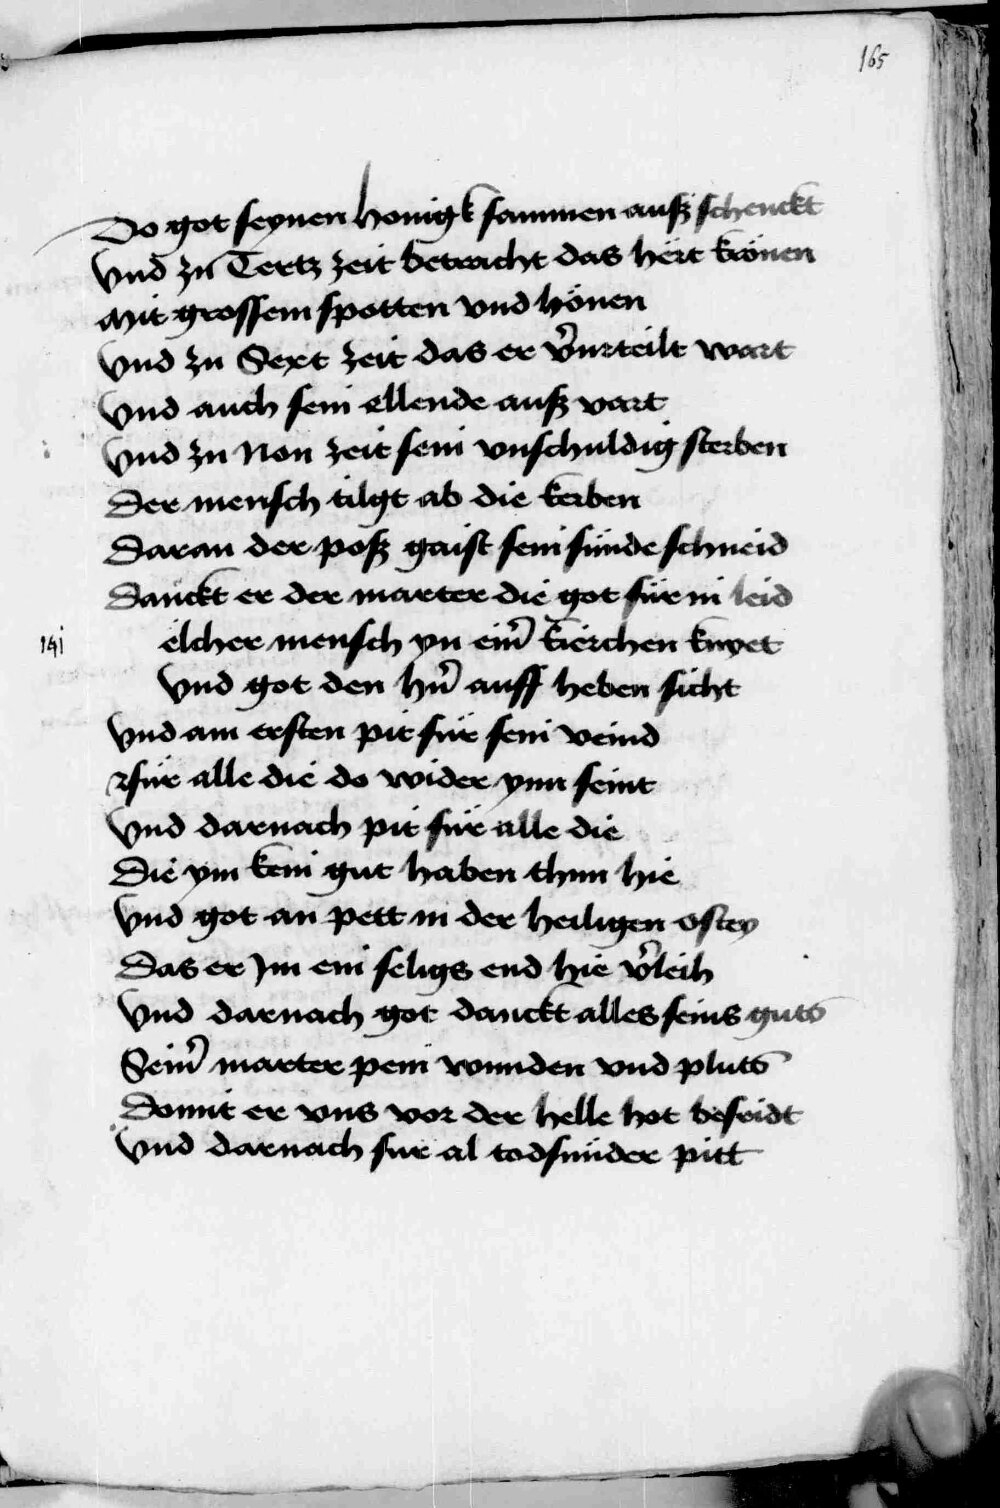 165
Do got seynen honigk sammen auß schenckt
Vnd zu Tertz zeit betracht das hert krönen
Mit grossem spotten vnd hönen
Vnd zu Sext zeit das er v̉urteilt wart
Vnd auch sein ellende auß vart
Vnd zu Non zeit sein vnschuldig sterben
Der mensch tilgt ab die kerben
Daran der poß gaist sein sünde schneid
Danckt er der marter die got für in leid
141
elcher mensch yn eim̉ kierchen knyet
Vnd got den hr̉n auff heben sicht
Vnd am ersten pit für sein veind
für alle die do wider ynn seint
Vnd darnach pit für alle die
Die ym kein gut haben thun hie
Vnd got an pett in der heiligen ostey
Das er Jm ein seligs end hie v̉leih
Vnd darnach got danckt alles seins guts
Sein̉ marter pein wunden vnd pluts
Domit er vns vor der helle hot befridt
Vnd darnach fur al todsunder pitt